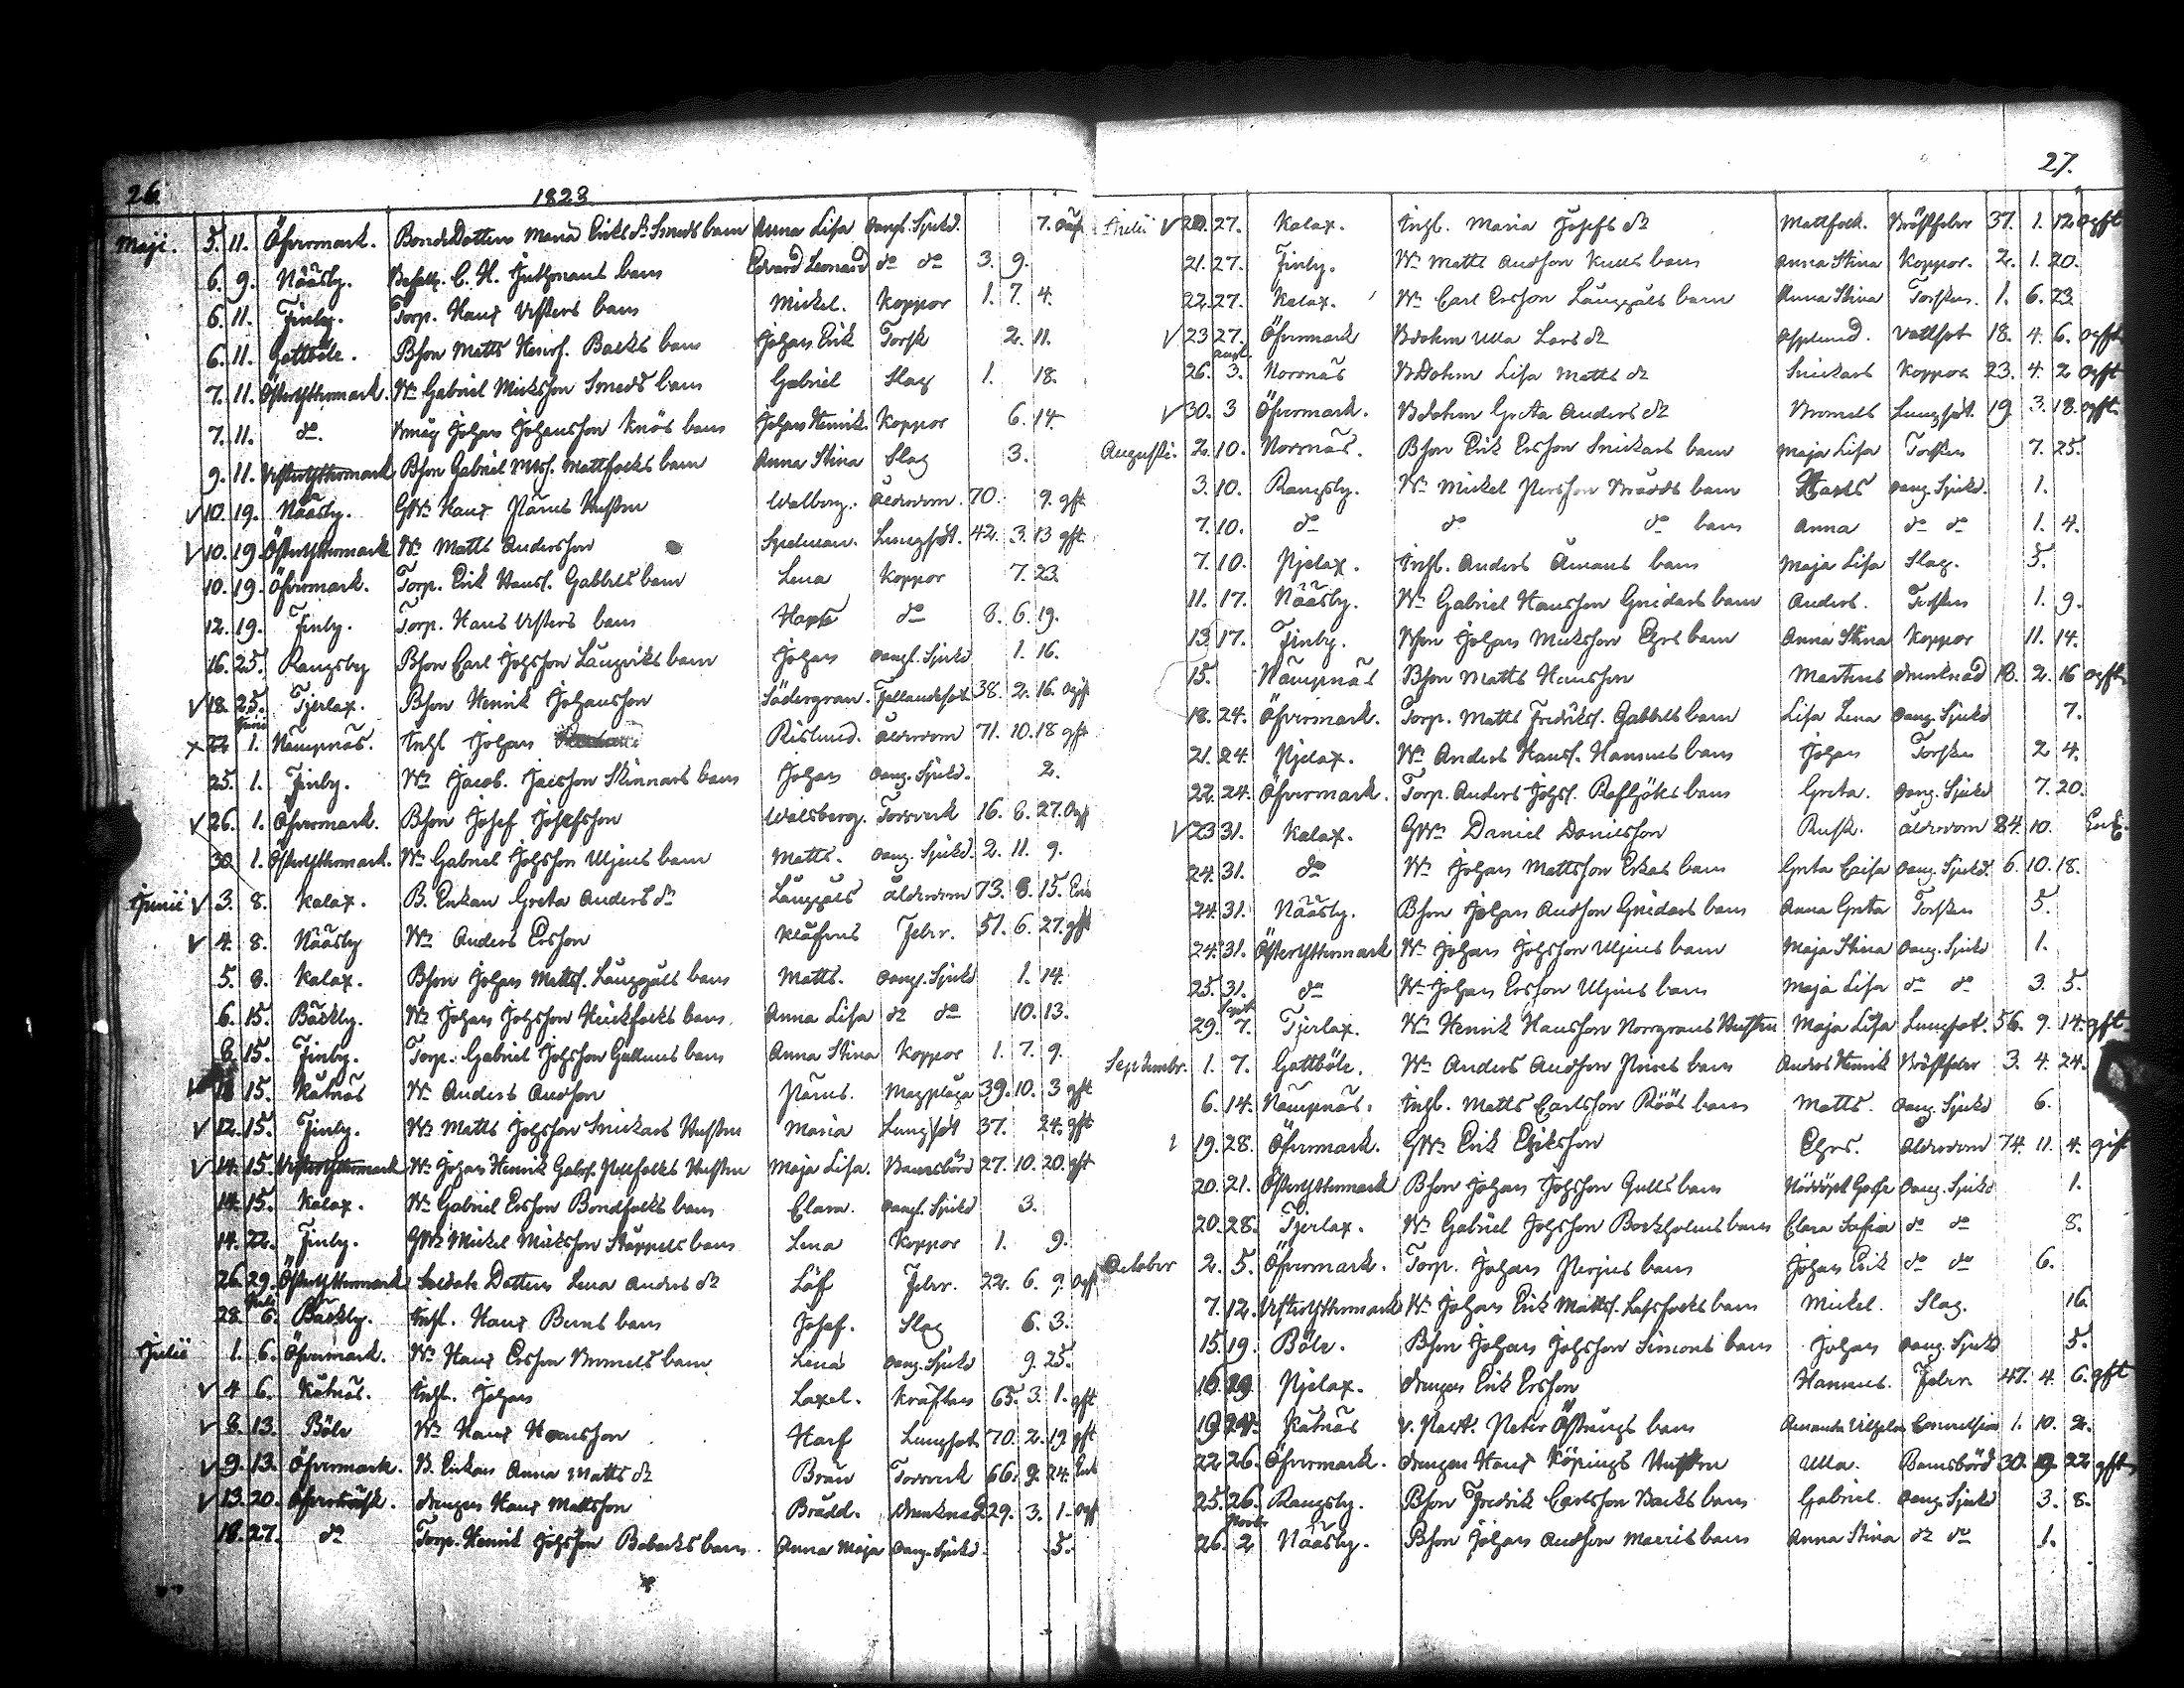 26.
1823
Maji. 5. 11. Öfvermark. Bonde Dottern Maria Eriks dr Smeds barn Anna Lisa oangf. Sjukd. 7. oäkt
6. 9. Nääsby. C. H. barn Edvard Leonard do do 3. 9.
6. 11. Finby. Torp. Hans Vesters barn Mickel. Koppor 1. 7. 4.
6. 11. Gottböle. Bson Matts Henrs. Backs barn Johan Erik Torsk 2. 11.
7. 11. Österyttermark. Wn Gabriel Micksson Smeds barn Gabriel Slag 1. 18.
7. 11. do. Johan Johansson Knös barn Johan Henrik. Koppor 6. 14.
9. 11. Vesteryttermark Bson Gabriel Mattfolks barn Anna Stina Slag 3.
V 10. 19. Nääsby. GWn Hans Pärus Hustru Walborg. ålderdom. 70. 9. gft
V 10. 19. Österyttermark Wn Matts Andersson Spelman. Lungsot. 42. 3. 13 gft.
10. 19. Öfvermark. Torp. Erik Hanss. Gabbels barn Lena Koppor 7. 23.
12. 19. Finby. Torp. Hans Vesters barn do 8. 6. 19.
16. 25. Rangsby Bson Carl Johsson Långviks barn Johan oangf. Sjukd 1. 16.
V 18. 25. Tjerlax. Bson Henrik Johansson Södergran. Fallandesot 38. 2. 16. ogift
Junii
x 22 1. Nämpnäs. Inhs Johan Ålderdom 71. 10. 18 gft
25. 1. Finby. Wn Jacob. Jacsson Skinnars barn Johan oang. Sjukd. 2.
V 26. 1. Öfvermark. Bson Josef Josefsson Walsberg. Torrverk 16. 8. 27. Ogft
30. 1. Österyttermark. Wn Gabriel Johsson Uljens barn Matts. oang. Sjukd. 2. 11. 9.
Junii V 3. 8. Kalax. B. Enkan Greta Anders dr Långgåls ålderdom 73. 8. 15. Enk
V 4. 8. Nääsby Wn Anders Ersson Klåfvus Feber. 51. 6. 27. gft
5. 8. Kalax. Bson Johan Matts. Långgåls barn Matts. oangf. Sjukd 1. 14.
6. 15. Bäckby. Wn Johan Johsson Heickfolks barn. Anna Lisa do do 10. 13.
8. 15. Finby. Torp. Gabriel Johsson Gullmes barn Anna Stina Koppor 1. 7. 9.
V 15. Kåtnäs Wn Anders Andson Pärus. Magplåga 39. 10. 3 gft
V 12. 15. Finby. Wn Matts Johsson Snickars Hustru Maria Lungsot 37. 24. gft
V 14. 15. Vesteryttermark Wn Johan Henrik Gabrs. Nelfolks Hustru Maja Lisa. Barnsbörd 27. 10. 20. gft
14. 15. Kalax. Wn Gabriel Ersson Bondfolks barn Clara. oangf. Sjukd 3.
14. 22. Finby. GWn Mickel Micksson Skäppels barn Lena Koppor 1. 9.
26. 29. Österyttermark Soldats Dottern Lena Anders dr Löf Feber. 22. 6. 9. ogft
Julii
28. 6. Bäckby. Inhs. Hans Berns barn Josef. Slag 6. 3.
Julii 1. 6. Öfvermark. Wn Hans Ersson barn Lena oang. Sjukd 9. 25.
V 4. 6. Kåtnäs. Inhs. Johan Laxel. Kräftan 65. 3. 1. gft
V 8. 13. Böle Wn Hans Hansson Harf Lungsot 70. 2. 19 gft
V 9. 13. Öfvermark. B. Enkan Anna Matts dr Brän Torrverk 66. 9. 24. Enk
V 13. 20. Öfverträsk. drengen Hans Mattsson Brådd. drunknad 29. 3. 1. ogft
18. 27. do Torp. Henrik Johsson Bobacks barn. Anna Maja oang. Sjukd. 5.
27.
Julii V 20. 27. Kalax. Inhs. Maria Josefs dr Mattfolk. Bröstfeber 37. 1. 12. ogft
21. 27. Finby. Wn Matts Andson Knuts barn Anna Stina Koppor. 2. 1. 20.
22. 27. Kalax. Wn Carl Ersson Långgåls barn Anna Stina Torsken. 1. 6. 23
V 23 27. Öfvermark Bdotern Ulla Lars dr Asplund. Vattsot 18. 4. 6. ogft
Aug.
26. 3. Norrnäs Bdotern Lisa Matts dr Snickars Koppor 23. 4. 2 ogft
V 30. 3 Öfvermark. Bdotern Greta Anders dr Lungsot. 19 3. 18. ogft.
Augusti. 2. 10. Norrnäs. Bson Erik Ersson Snickars barn Maja Lisa Torsken 7. 25.
3. 10. Rangsby. Wn Mickel Persson Brådds barn oang. Sjukd. 1.
7. 10. do do do barn Anna do do 1. 4.
7. 10. Pjelax. Inhs. Anders Åmans barn Maja Lisa Slag. 5.
11. 17. Nääsby. Wn Gabriel Hansson Gnidars barn Anders. Torsken 1. 9.
13 17. Finby. Wson Johan Micksson Ehrs barn Anna Stina Koppor 11. 14.
15. Nämpnäs Bson Matts Hansson Martens drunknad 18. 2. 16 ogft
18. 24. Öfvermark. Torp. Matts Fredrikss. Gabbels barn Lisa Lena oang. Sjukd 7.
21. 24. Pjelax. Wn Anders Hanss. Hannus barn Johan Torsken 2 4.
22. 24. Öfvermark. Torp. Anders Johss. Refhjöks barn Greta. oang. Sjukd 7. 20.
V 23 31. Kalax. GWn Daniel Danielsson Rusk. ålderdom 84. 10. Enk.
24. 31. do Wn Johan Mattsson Erkas barn Greta Caisa oang. Sjukd. 6. 10. 18.
24. 31. Nääsby. Bson Johan Andson Gnidars barn Anna Greta Torsken 5.
24. 31. Österyttermark Wn Johan Johsson Uljens barn Maja Stina oang. Sjukd 1.
25. 31. do Wn Johan Ersson Uljens barn Maja Lisa do do 3. 5.
Sept
29. 7. Tjerlax. Wn Henrik Hansson Norrgrans Hustru Maja Lisa Lungsot. 56. 9. 14. gft
Septembr. 1. 7. Gottböle. Wn Anders Andson barn Anders Henrik Bröstfeber 3. 4. 24.
6. 14. Nämpnäs. Inhs. Matts Carlsson Röös barn Matts. oang. Sjukd 6.
19. 28. Öfvermark. GWn Erik Eriksson Ehrs. ålderdom 74. 11. 4. gift
20. 21. Österyttermark Bson Johan Johsson Gulls barn Nöddöpt Gosse oang. Sjukd 1.
20. 28. Tjerlax. Wn Gabriel Johsson Borkholms barn Clara Sofia do do 8.
October 2. 5. Öfvermark. Torp. Johan Perjus barn Johan Erik do do 6.
7. 12. Vesteryttermark Wn Johan Erik Matts. Lassfolks barn Mickel. Slag. 16.
15. 19. Böle. Bson Johan Johsson Simons barn Johan oang. Sjukd 5.
16. 19. Pjelax. drengen Erik Ersson Hannus. Feber 47. 4. 6. gft
19 Kåtnäs Peter Östrings barn Amanda Vilhelm Convulsion 1. 10. 2.
22. 26. Öfvermark. drengen Hans Köpings Hustru Ulla. Barnsbörd 30. 22 gft
25. 26. Rangsby. Bson Fredrik Carlsson Backs barn Gabriel. oang. Sjukd 3. 8.
Novb.
26. 2 Nääsby. Bson Johan Andson barn Anna Stina do do 1.